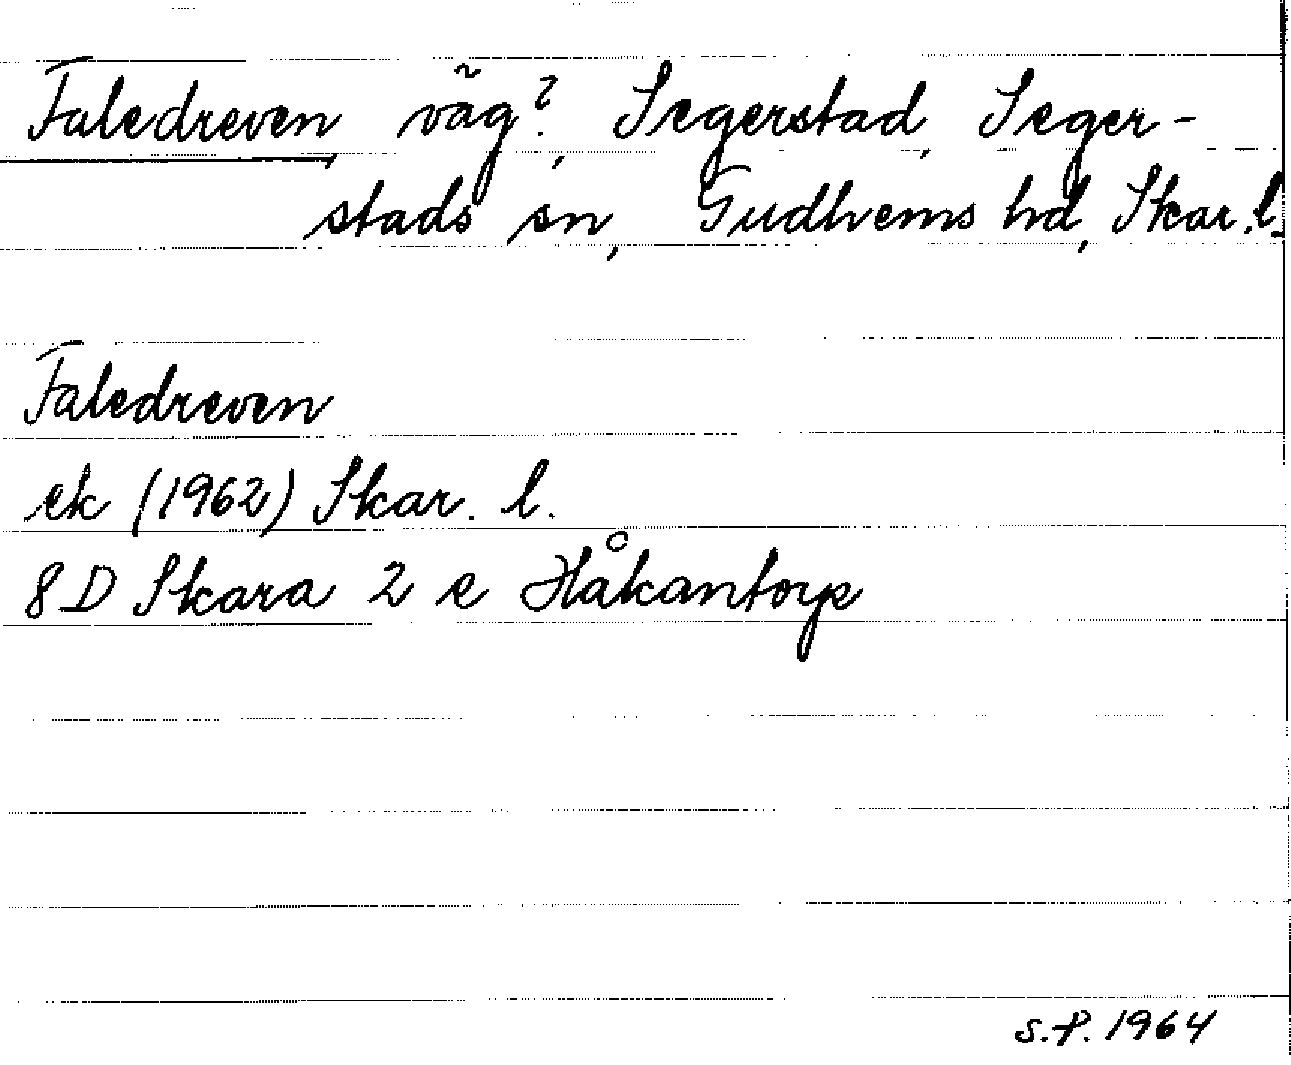 Faledreven, väg?, Segerstad, Seger-
stads sn, Gudhems hd, Skar. l.
Faledreven
ek (1962) Skar. l.
8D Skara 2 e Håkantorp
S.P. 1964